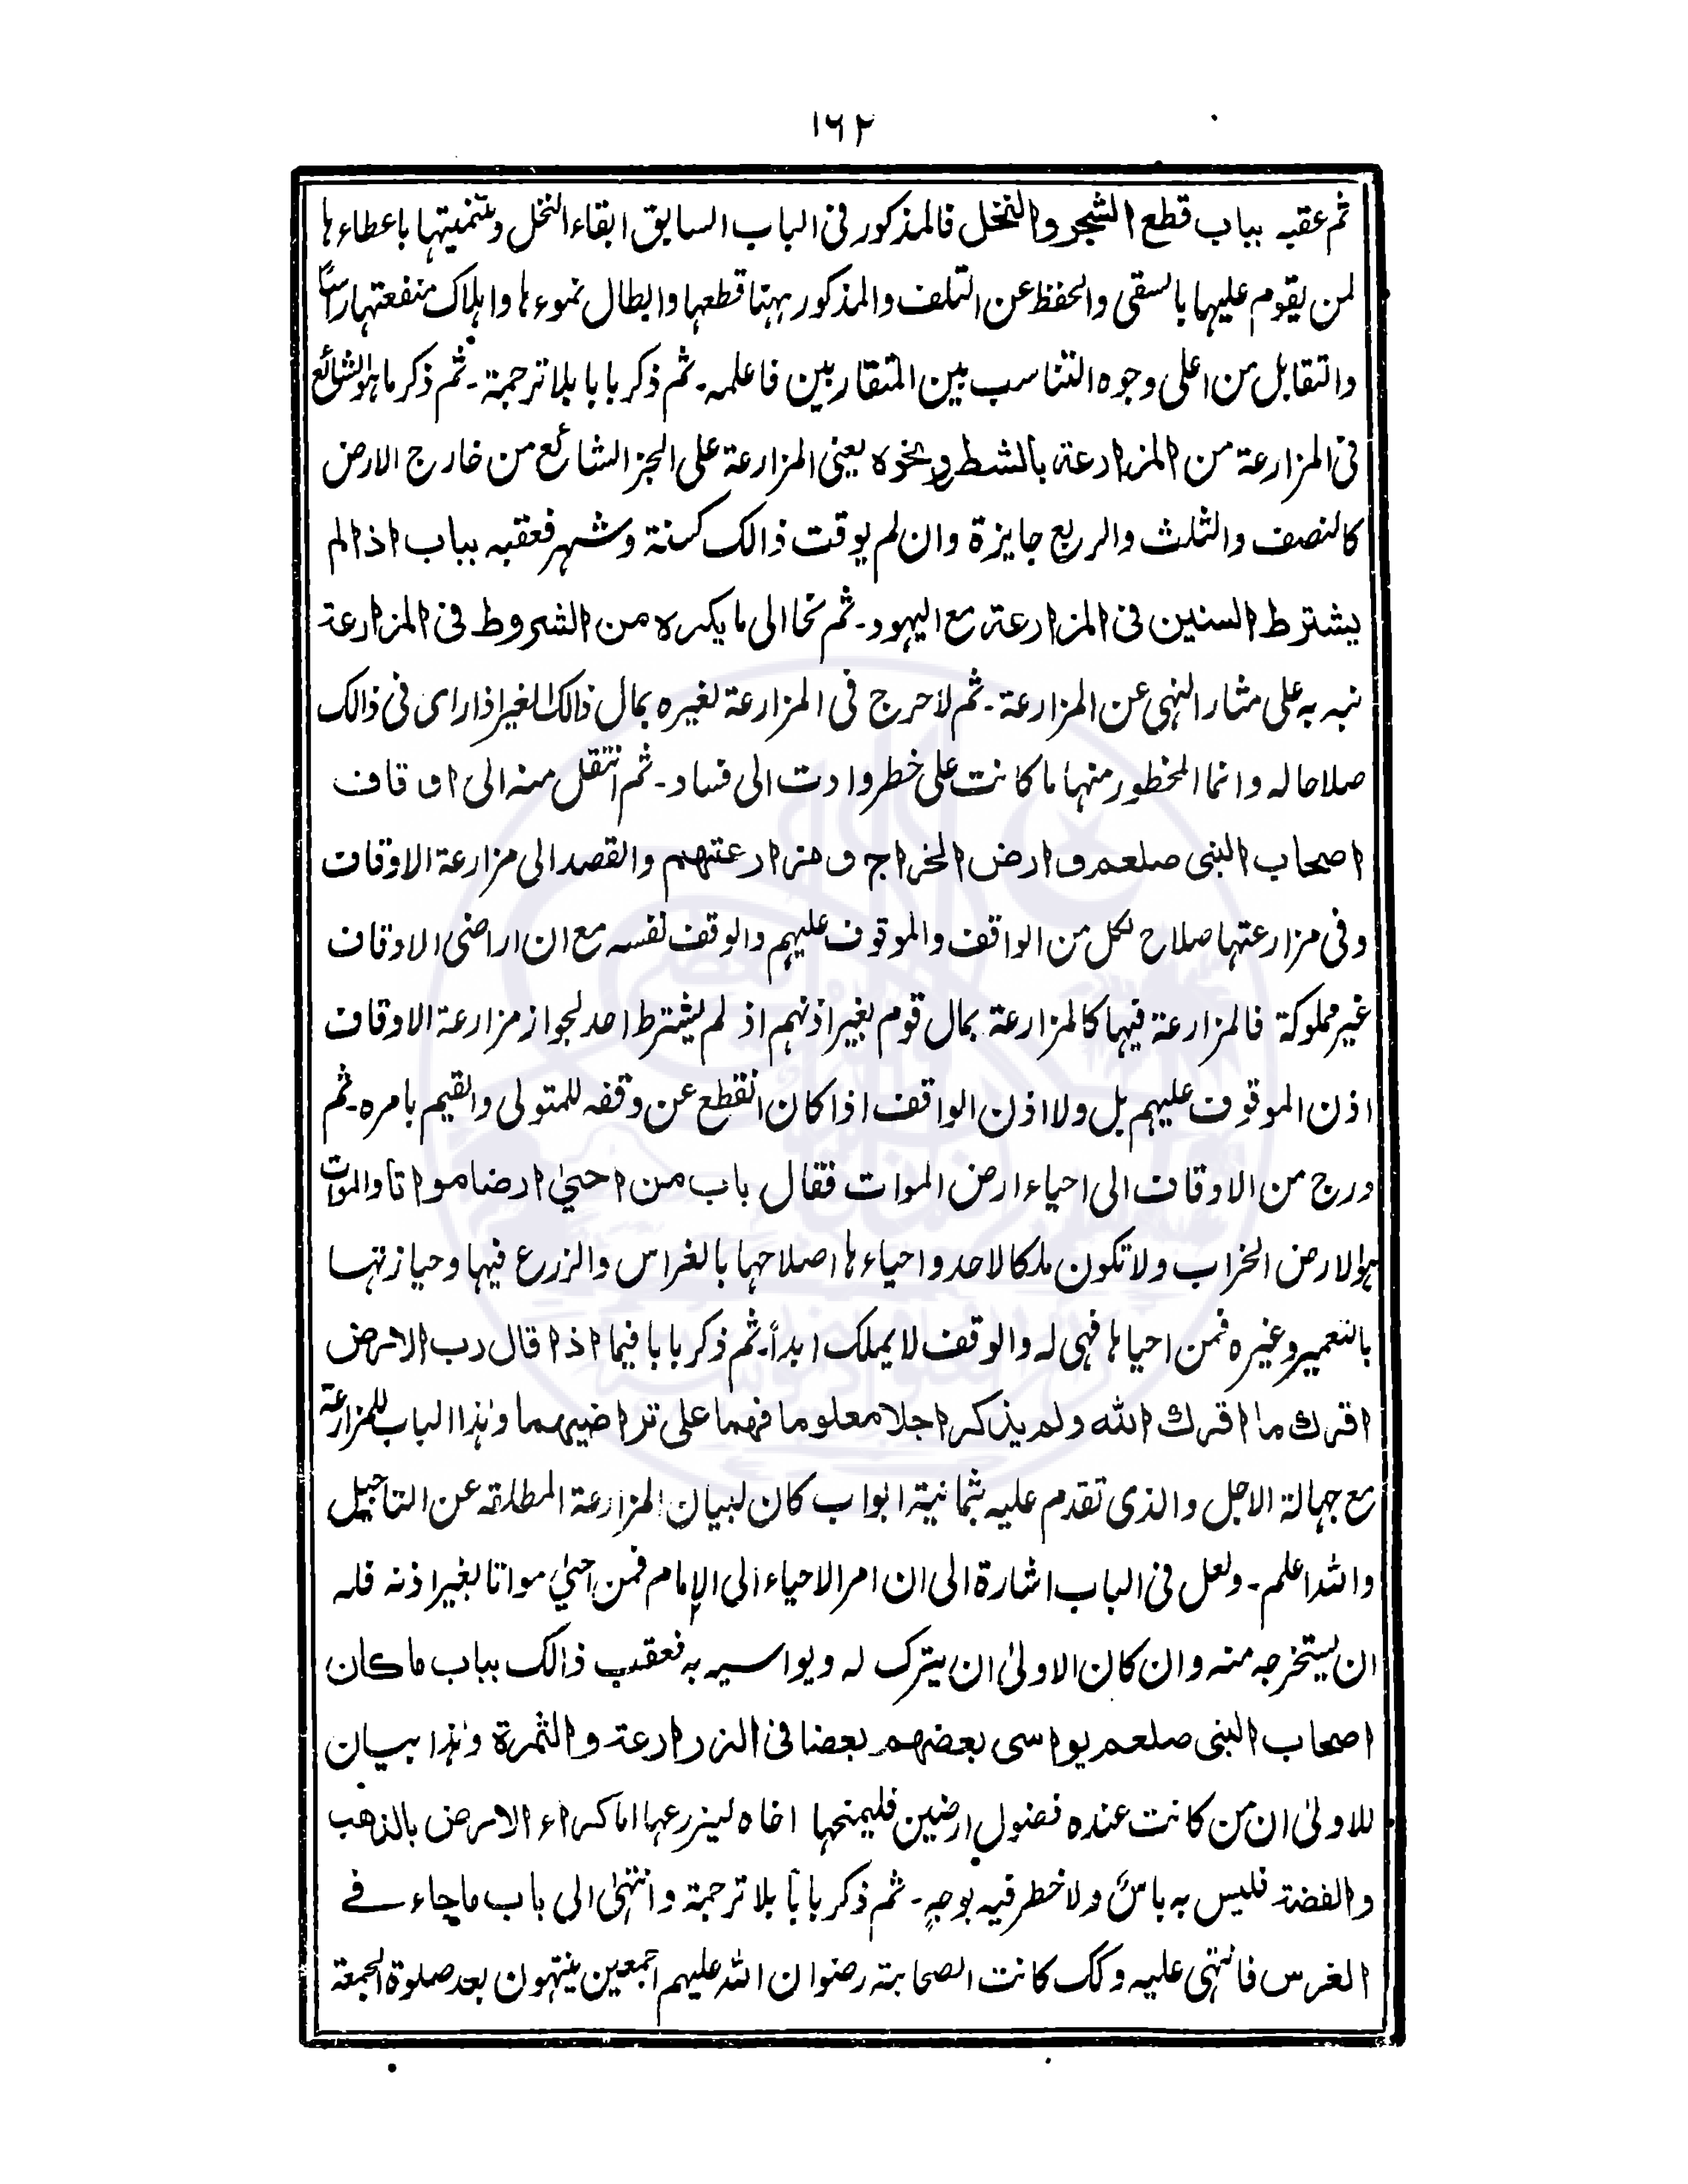 ١٦٢
ثم عقبه بباب قطع الشجر والنخل فالمذكور فى الباب السابق ابقاء النخل وتنميتها باعطاءها
لمن يقوم عليها بالسقى والحفظ عن التلف والمذكور ههنا قطعها وابطال نموءها واهلاك منفعتها راسًا
والتقابل من اعلى وجوه التناسب بين المتقاربين فاعلمه۔ ثم ذكر بابا بلا ترجمة۔ ثم ذكر ما هو الشائع
فى المزارعة من المزارعة بالشطر ونحوه يعنى المزارعة على الجز الشائع من خارج الارض
كالنصف والثلث والربع جايزة وان لم يوقت ذالك كسنة وشهر فعقبه بباب اذا لم
يشترط السنين فى المزارعة مع اليهود۔ ثم نحا الى ما يكره من الشروط فى المزارعة
نبه به على مثار النهى عن المزارعة۔ ثم لا حرج فى المزارعة لغيره بمال ذالك الغير اذا راى فى ذالك
صلاحا له وانما المخطور منها ما كانت على خطر وادت الى فساد۔ ثم انتقل منه الى اوقاف
اصحاب النبى صلعم وارض الخراج ومزارعتهم والقصد الى مزارعة الاوقاف
وفى مزارعتها صلاح لكل من الواقف والموقوف عليهم والوقف نفسه مع ان اراضى الاوقاف
غير مملوكة فالمزارعة فيها كالمزارعة بمال قوم بغير اذنهم اذ لم يشترط احد لجواز مزارعة الاوقاف
اذن الموقوف عليهم بل ولا اذن الواقف اذا كان انقطع عن وقفه للمتولى والقيم بامره۔ ثم
درج من الاوقاف الى احياء ارض الموات فقال باب من احيىٰ ارضا مواتا والموات
هو الارض الخراب ولا تكون ملكا لاحد واحياءها اصلاحها بالغراس والزرع فيها وحيازتها
بالتعمير وغيره فمن احياها فهى له والوقف لا يملك ابداً۔ ثم ذكر بابا فيما اذا قال رب الارض
اقرك ما اقرك الله ولم يذكر اجلا معلوما فهما على تراضيهما وهذا الباب للمزارعة
مع جهالة الاجل والذى تقدم عليه بثمانية ابواب كان لبيان المزارعة المطلقه عن التاجيل
والله اعلم۔ ولعل فى الباب اشارة الى ان امر الاحياء الى الامام فمن احيىٰ مواتا بغير اذنه فله
ان يستخرجه منه وان كان الاولىٰ ان يترك له ويواسيه به فعقب ذالك بباب ما كان
اصحاب النبى صلعم يواسى بعضهم بعضا فى الزراعة والثمرة وهذا بيان
للاولىٰ ان من كانت عنده فضول ارضين فليمنحها اخاه ليزرعها اما كراء الارض بالذهب
والفضة فليس به باسٌ ولا خطر فيه بوجهٍ۔ ثم ذكر بابًا بلا ترجمة وانتهىٰ الى باب ما جاء فے
الغرس فانتهى عليه وكك كانت الصحابة رضوان الله عليهم اجمعين ينتهون بعد صلوة الجمعة